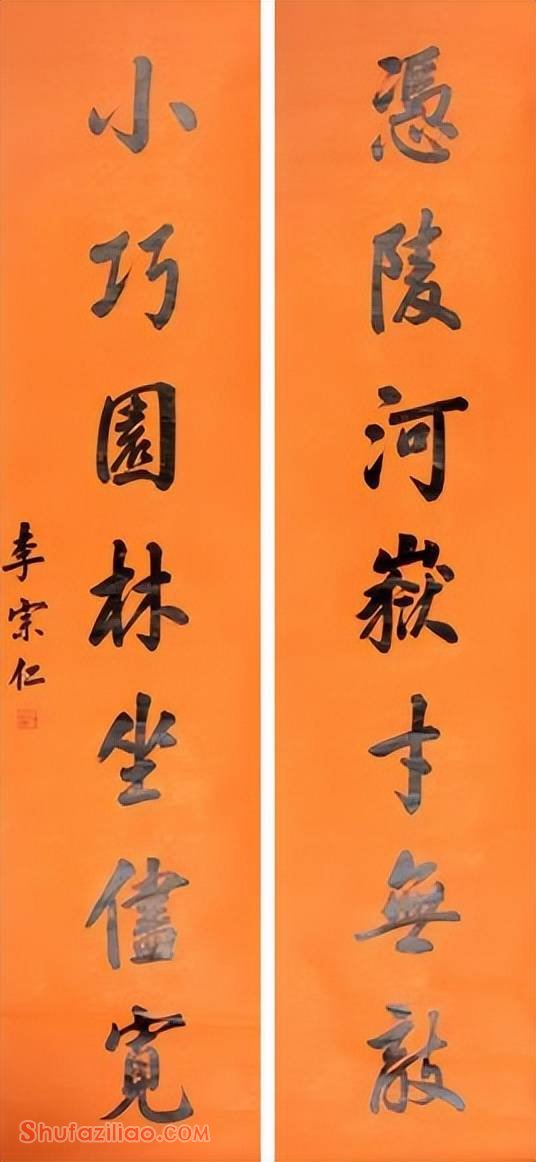 憑陵河嶽才無敵
小巧園林坐儘寬
李宗仁
Shufaziliao.com